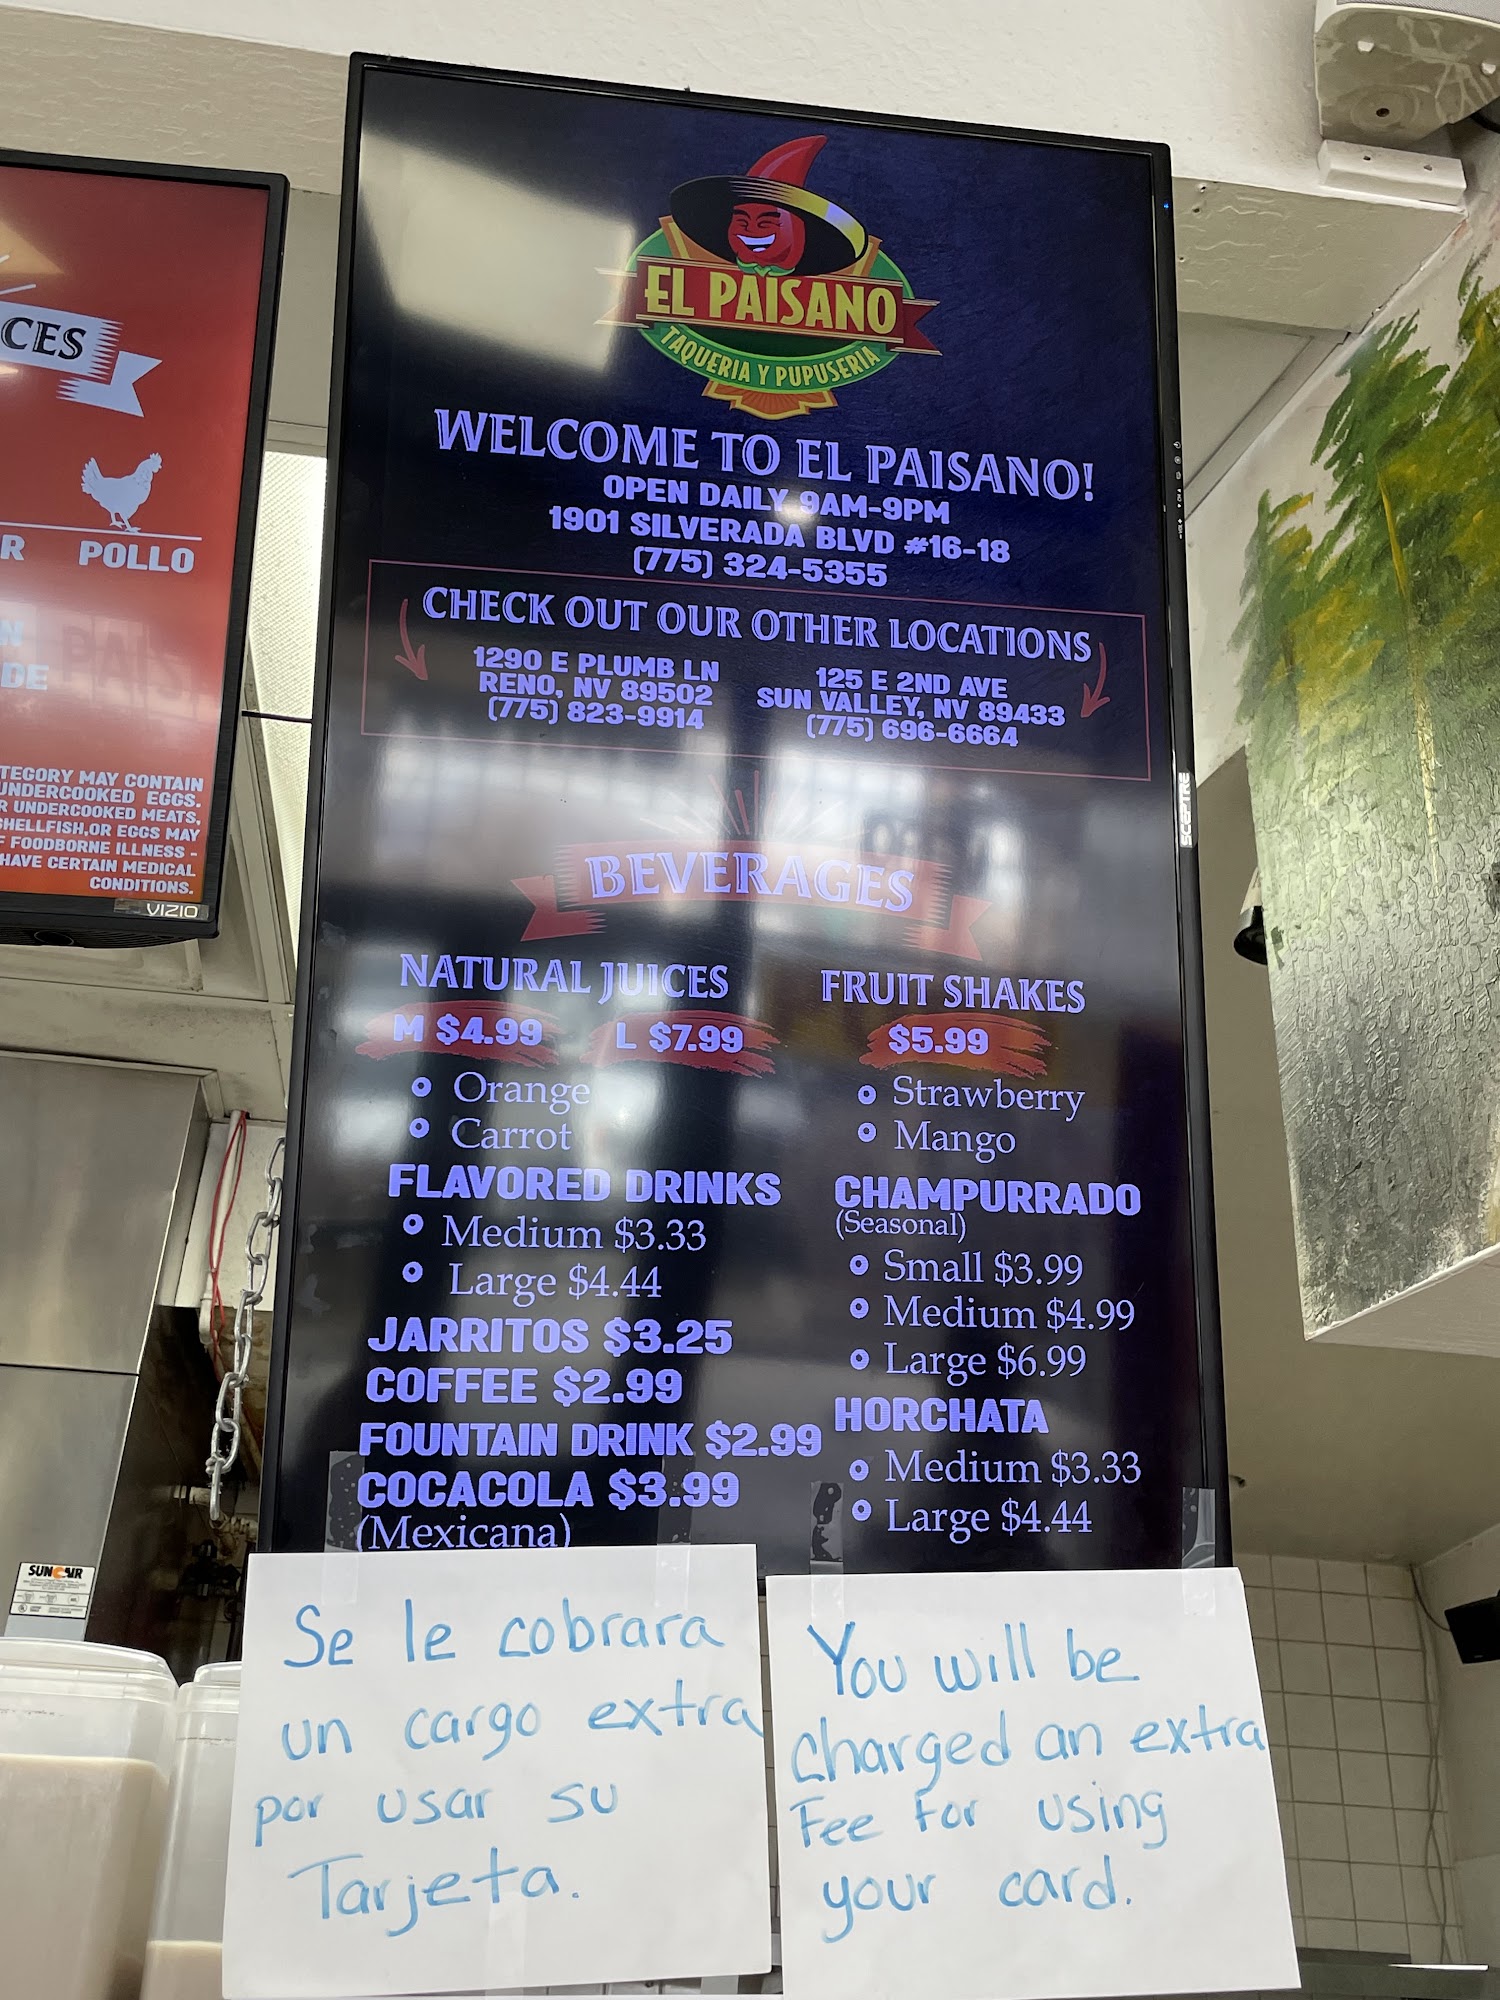 CES
R POLLO
N
DE
TEGORY MAY CONTAIN
UNDERCOOKED EGGS.
R UNDERCOOKED MEATS,
SHELLFISH,OR EGGS MAY
F FOODBORNE ILLNESS -
HAVE CERTAIN MEDICAL
CONDITIONS.
VIZIO
EL PAISANO
TAQUERIA Y PUPUSERIA
WELCOME TO EL PAISANO!
OPEN DAILY 9AM-9PM
1901 SILVERADA BLVD #16-18
(775) 324-5355
CHECK OUT OUR OTHER LOCATIONS
1290 E PLUMB LN
RENO, NV 89502
(775) 823-9914
125 E 2ND AVE
SUN VALLEY, NV 89433
(775) 696-6664
SCEPTRE
BEVERAGES
NATURAL JUICES
M $4.99 L $7.99
Orange
Carrot
FLAVORED DRINKS
Medium $3.33
Large $4.44
JARRITOS $3.25
COFFEE $2.99
FOUNTAIN DRINK $2.99
COCACOLA $3.99
(Mexicana)
FRUIT SHAKES
$5.99
Strawberry
Mango
CHAMPURRADO
(Seasonal)
Small $3.99
Medium $4.99
Large $6.99
HORCHATA
Medium $3.33
Large $4.44
SUNCAIR
Se le cobrara
un cargo extra
por usar su
Tarjeta.
You will be
charged an extra
Fee For using
your card.